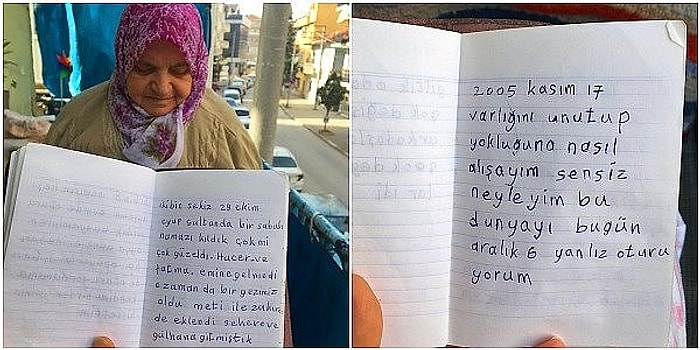 ikibin sekiz 29 ekim
eyup sultanda bir sabah
namazı kıldık çokmi
çok güzeldi. Hacer-ve
fatma. emine gelmedi
ozaman da bir gezimiz
oldu meti ile zahire
de eklendi sehereve
gülhana gitmiştik
2005 kasım 17
varlığını unutup
yokluğuna nasıl
alışayım sensiz
neyleyim bu
dunyayı bugün
aralık 6 yanlız oturu
yorum